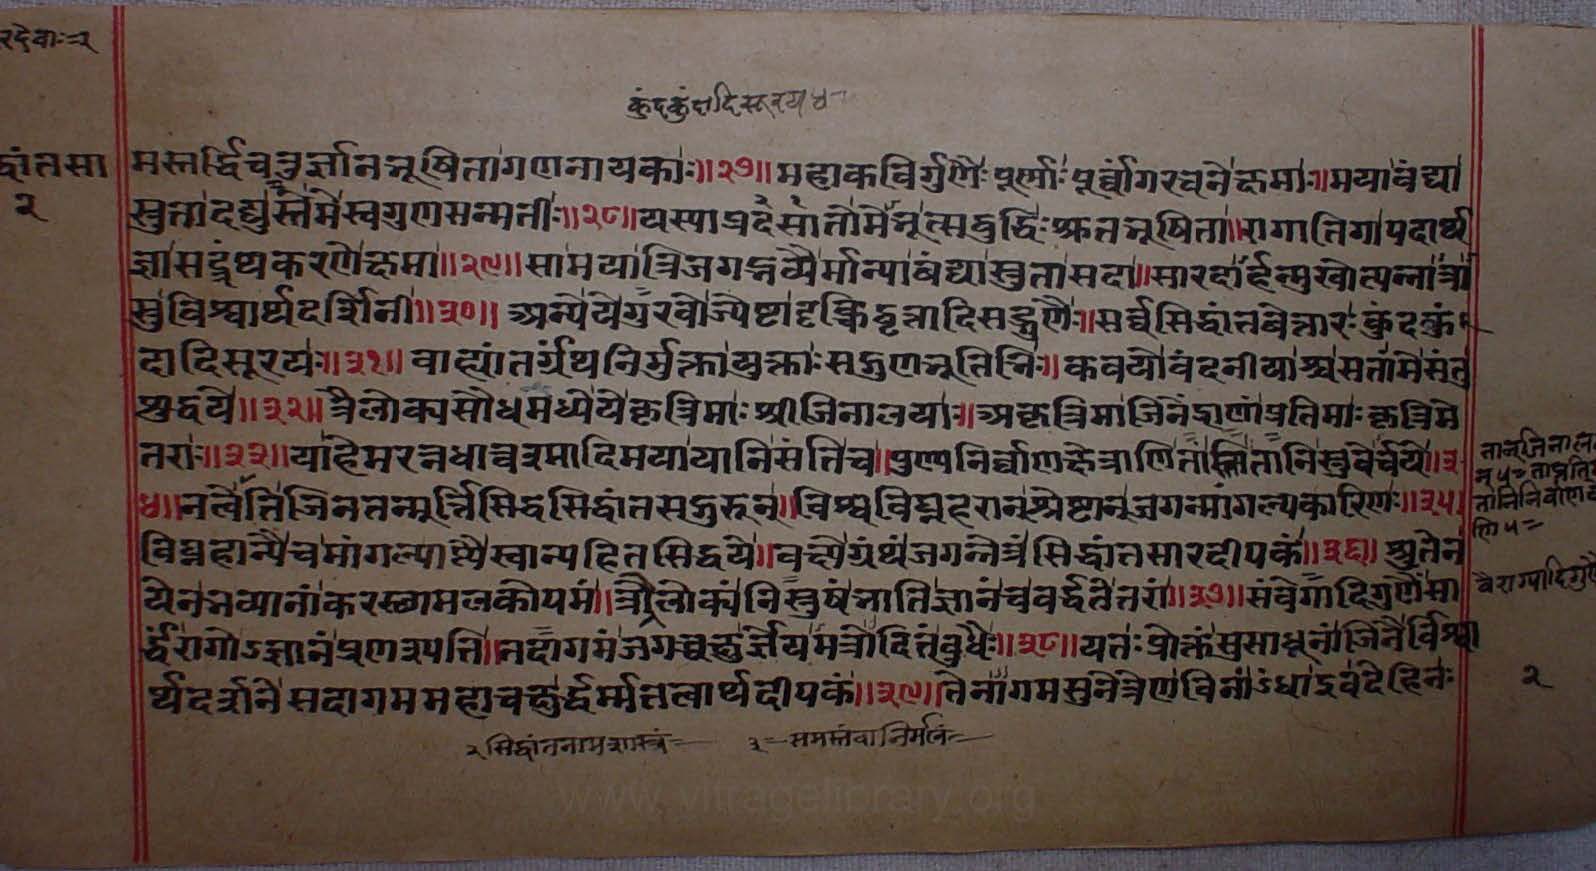 रदेवाः=२
कुंदकुंदादिसूरयः
द्धांतसा
२
मस्तर्द्धिचतुर्ज्ञानभूषितागणनायकाः॥२७॥महाकविर्गुणैः पूर्णाः पूर्वांगरचनेक्षमाः॥मयावंद्या
स्तुतादद्युस्तेमेस्वगुणसन्मतीः॥२८॥यस्याप्रदसातोमेभूत्सद्बुद्धिः श्रुतभूषिता॥रागातिगापदार्थ
ज्ञासद्ग्रंथकरणेक्षमा॥२९॥सामयात्रिजगद्भव्यैर्मान्यावंद्यास्तुतासदा॥सारदार्हन्मुखोत्पन्नात्रा
सुविश्वार्थदर्शिनी॥३०॥अन्येयेगुरवोज्येष्टादृक्चिद्वृत्तादिसद्गुणैः॥सर्वसिद्धांतवेत्तारः कुंदकुं
दादिसूरयः॥३१॥वाह्यांतर्ग्रंथनिर्मुक्तायुक्ताः सद्गुणभूतिभिः॥कवयोवंदनीयाश्चसतांमेसंतु
शुद्धये॥३२॥त्रैलोक्यसौधमध्येयेकृत्रिमाः श्रीजिनालयाः॥अकृत्रिमाजिनेंद्राणांप्रतिमाः कृत्रिमे
तराः॥३३॥याहेमरत्नधात्वश्मादिमयायानिसंतिच॥पुण्यनिर्वाणक्षेत्राणितांस्तास्तानिस्तुवेर्चये॥३
४॥नत्वेतिजिनतन्मूर्त्तिसिद्धसिद्धांतसद्गुरून्॥विश्वविघ्नहरान्श्रेष्टान्जगन्मांगल्यकारिणः॥३५॥
विघ्नहान्यैचमांगल्याप्त्यैस्वान्यहितसिद्धये॥वक्ष्येग्रंथंजगन्नेत्रंसिद्धांतसारदीपकं॥३६॥श्रुतेन
येनभव्यानांकरस्थामलकोपमं॥त्रैलोक्यंनिस्तुषंभातिज्ञानंचवर्द्धतेतरां॥३७॥संवेगादिगुणैःसा
र्द्धंरागोऽज्ञानंप्रणश्यति॥तदागमंजगच्चक्षुर्ज्ञेयमत्रोदितंबुधैः॥३८॥यतः प्रोक्तंसुसाधूनांजिनैर्विश्वा
र्थदर्शनेसदागममहाचक्षुर्द्धर्म्मतत्वार्थदीपकं॥३९॥तेनागमसुनेत्रेणविनांऽधाइवदेहिनः
वैराग्यादिगुणैः
२
२ सिद्धांतनामशास्त्रं= ३=समस्तंवानिर्मलं=
www.vitragelibrary.org